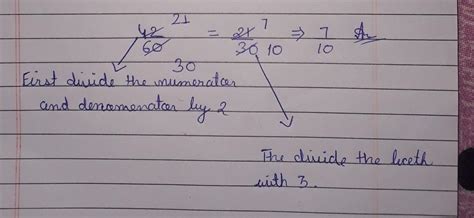 42/60 21/30 = 21/30 7/10 ⇒ 7/10 Ans
First divide the numerator
and denomenator by 2
The divide the both
with 3.